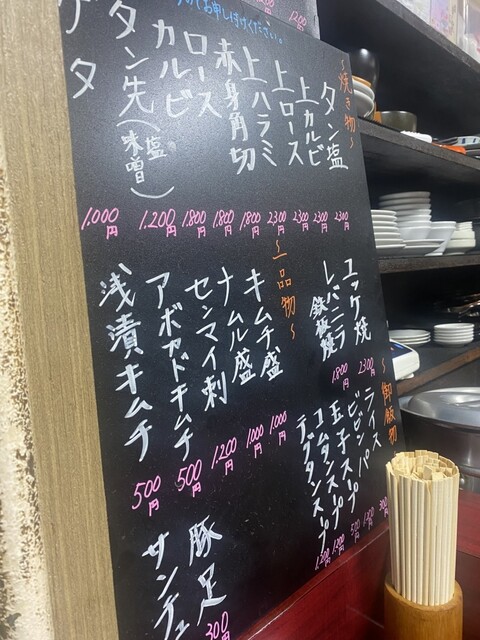 てお申し付けください。
1200円
〜焼き物〜
タン塩 2300円
上カルビ 2300円
上ロース 2300円
上ハラミ 2300円
赤身角切 1800円
ロース 1800円
カルビ 1800円
タン先(塩 味噌) 1,200円
1,000円
ユッケ焼 2300円
レバニラ鉄板焼 1800円
〜一品物〜
キムチ盛 1,000円
ナムル盛 1,000円
センマイ刺 1,200円
アボカドキムチ 500円
浅漬キムチ 500円
豚足
サンチュ 300円
〜御飯物
ライス 300円
ビビンバ
玉子スープ 500円
コムタンスープ 1,200円
テグタンスープ 1,200円